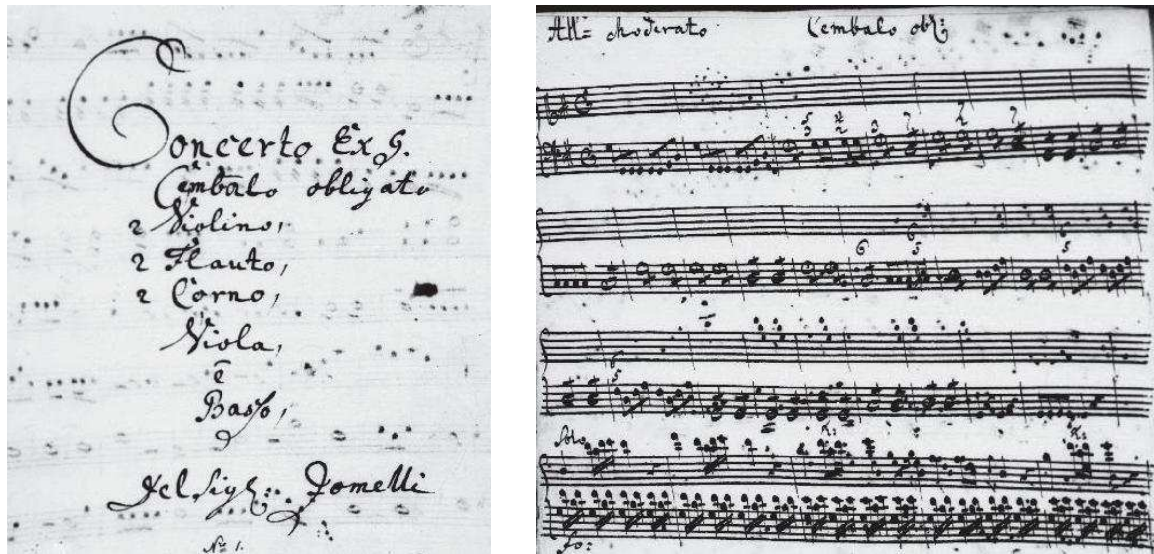 Concerto Ex G.
Cembalo obligato
2 Violino,
2 Flauto,
2 Corno,
Viola,
è
Basso,
Del Sigr: Jomelli
No: 1.
All: moderato Cembalo obl:
Solo
fo: